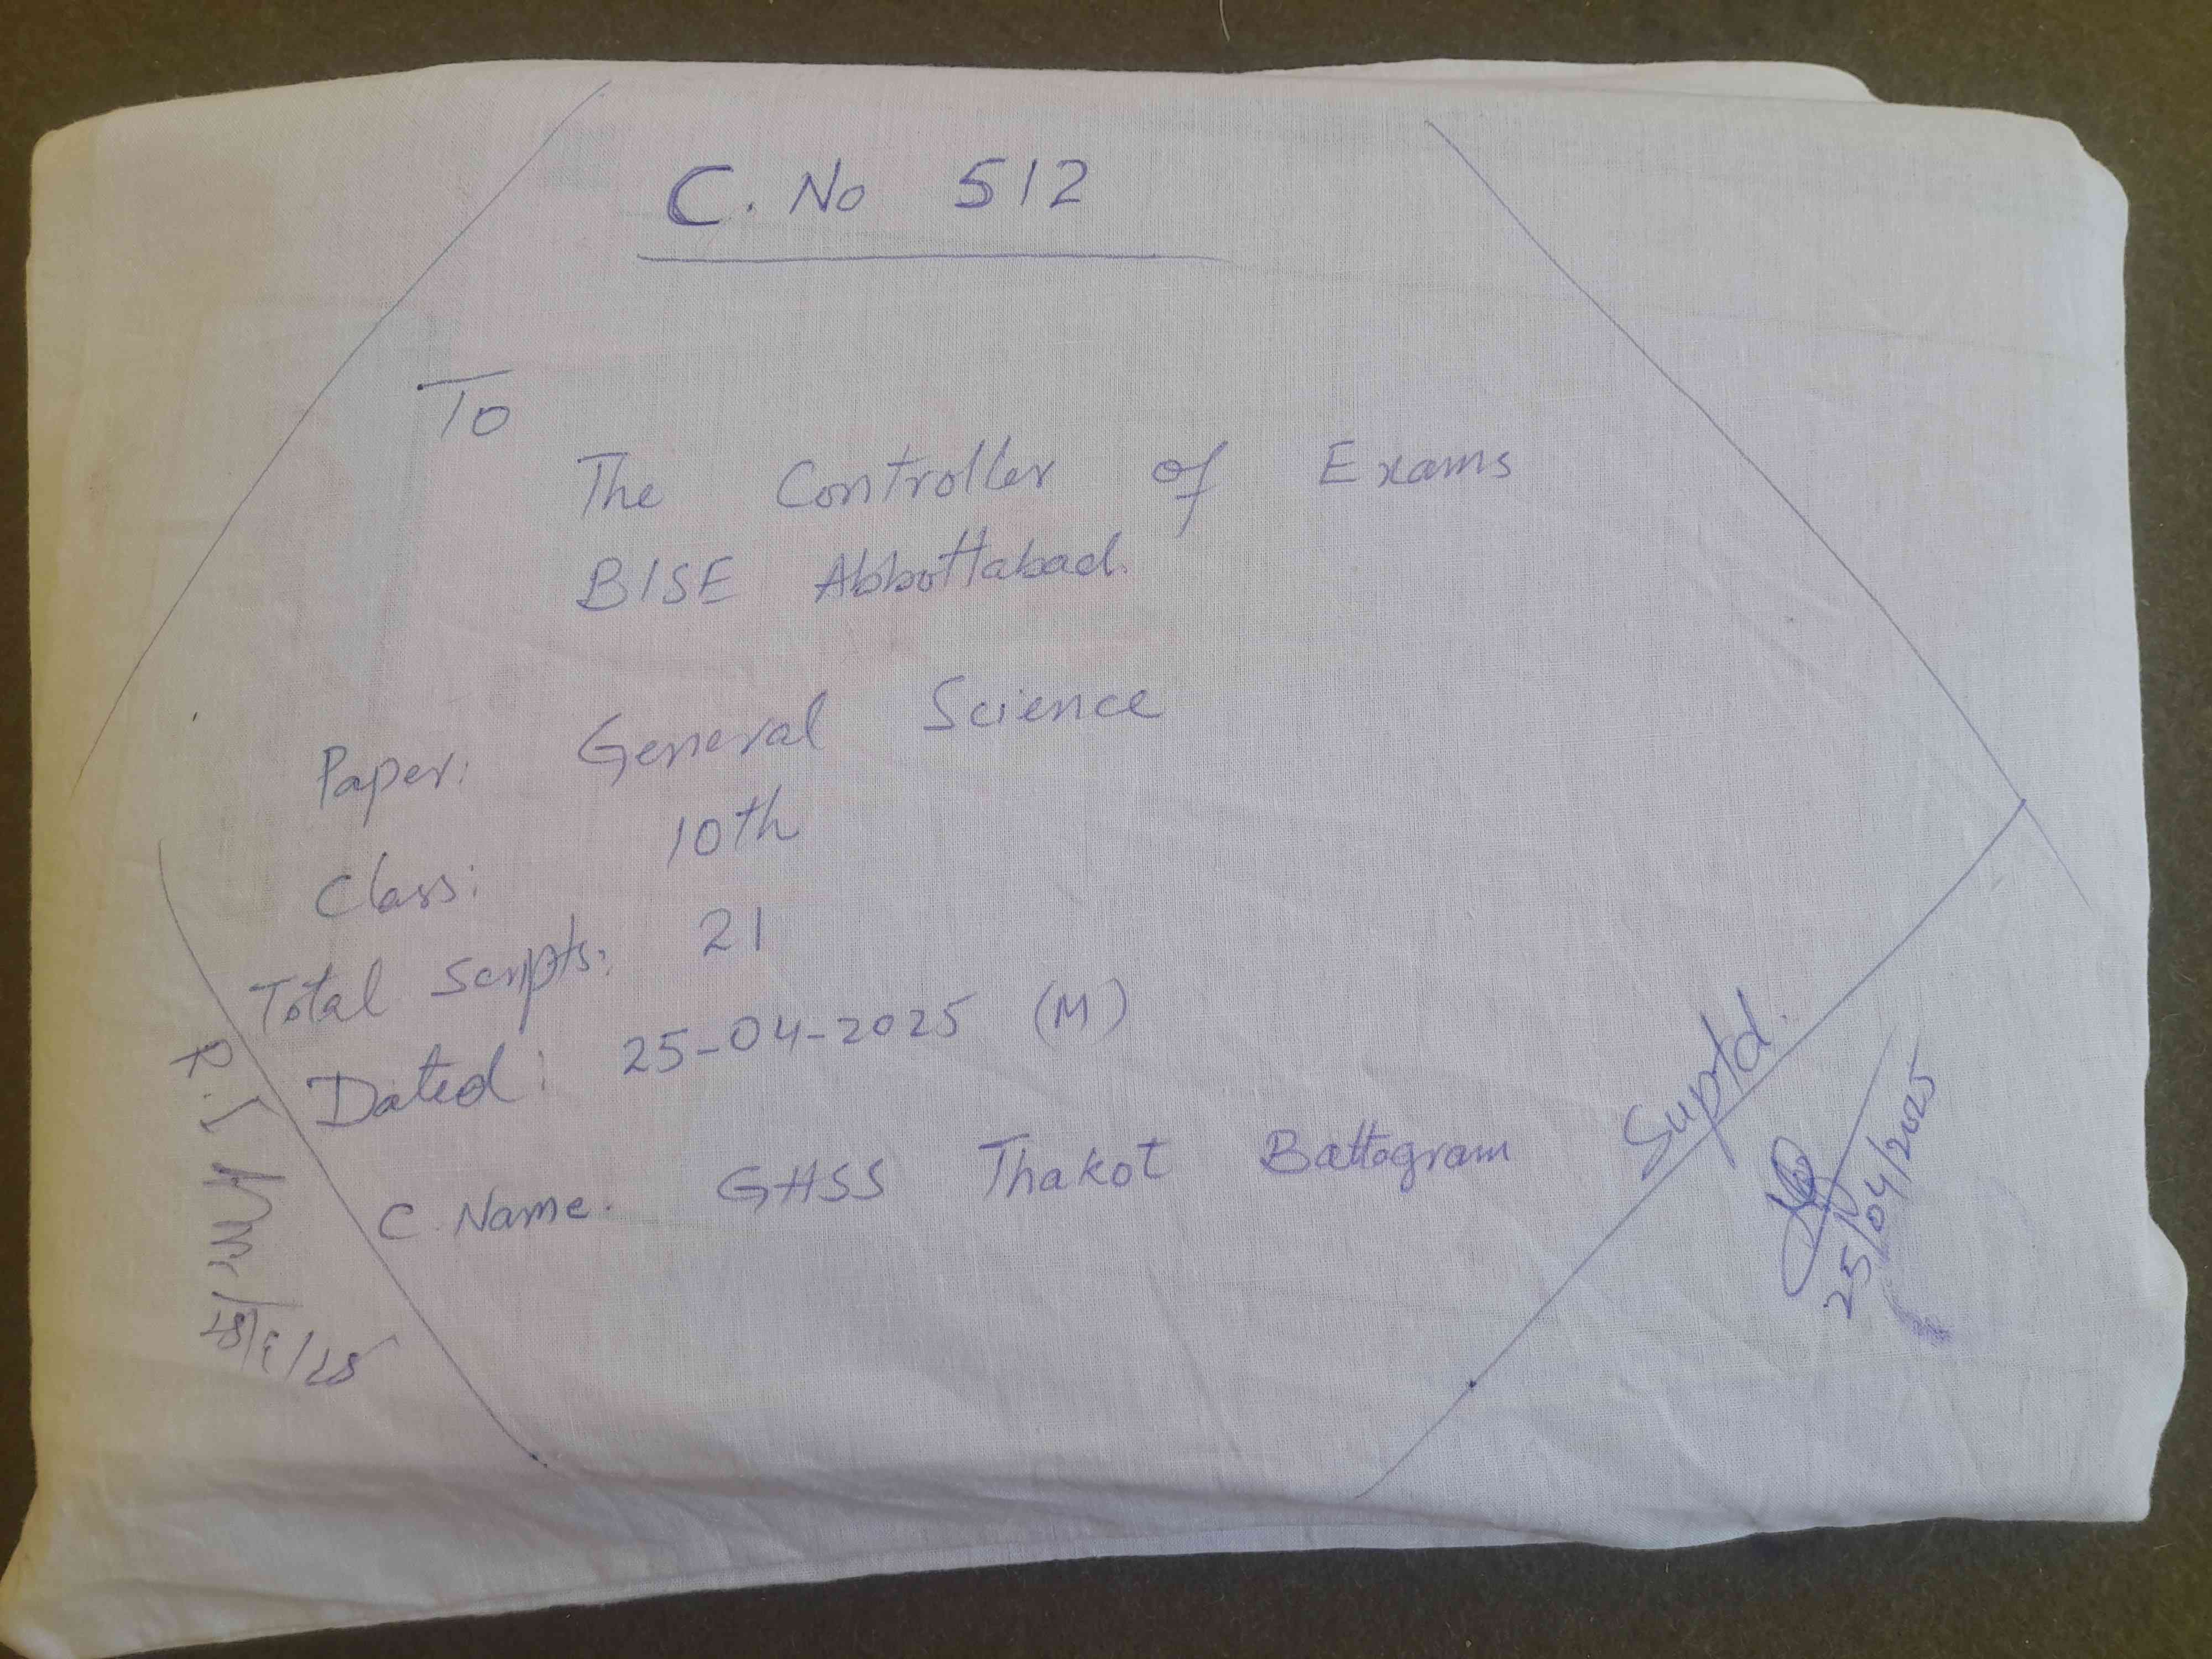 C. No 512
To
The Controller of Exams
BISE Abbottabad.
Paper: General Science
Class: 10th
Total Scripts: 21
Dated: 25-04-2025 (M)
C. Name. GHSS Thakot Battagram
Suptd.
25/04/2025
R.I